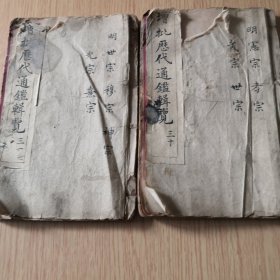 明憲宗 孝宗
武宗 世宗
增批歷代通鑑輯覽
三十
明世宗 穆宗 神宗
光宗 熹宗
增批歷代通鑑輯覽